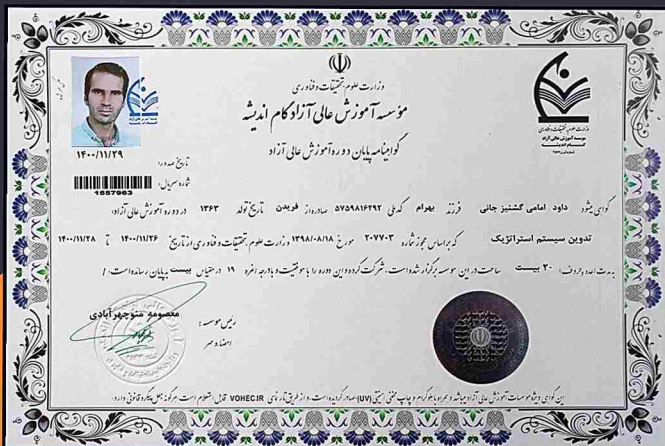 وزارت علوم، تحقیقات و فناوری
مؤسسه آموزش عالی آزاد گام اندیشه
گواهینامه پایان دوره آموزش عالی آزاد
۱۴۰۰/۱۱/۲۹
تاریخ صدور:
شماره سریال:
1557963
گواهی میشود داود امامی گشنیز جانی فرزند بهرام کد ملی ۵۷۵۹۸۱۶۲۹۲ صادره از فریدن تاریخ تولد ۱۳۶۳ در دوره آموزش عالی آزاد:
تدوین سیستم استراتژیک که بر اساس مجوز شماره ۲۰۷۷۰۳ مورخ ۱۳۹۸/۰۸/۱۸ وزارت علوم، تحقیقات و فناوری از تاریخ ۱۴۰۰/۱۱/۲۶ تا ۱۴۰۰/۱۱/۲۸
به مدت (عدد و حروف) ۲۰ بیست ساعت در این موسسه برگزار شده است، شرکت کرده و این دوره را با موفقیت و با درجه / نمره ۱۹ در مقیاس بیست به پایان رسانده است. /
معصومه منوچهرآبادی
رئیس موسسه:
امضاء و مهر
این گواهی ویژه موسسات آموزش عالی آزاد میباشد و همراه با هلوگرام و چاپ مخفی امنیتی (UV) صادر گردیده است و از طریق تارنمای VOHEC.IR قابل استعلام است. هرگونه جعل پیگرد قانونی دارد.